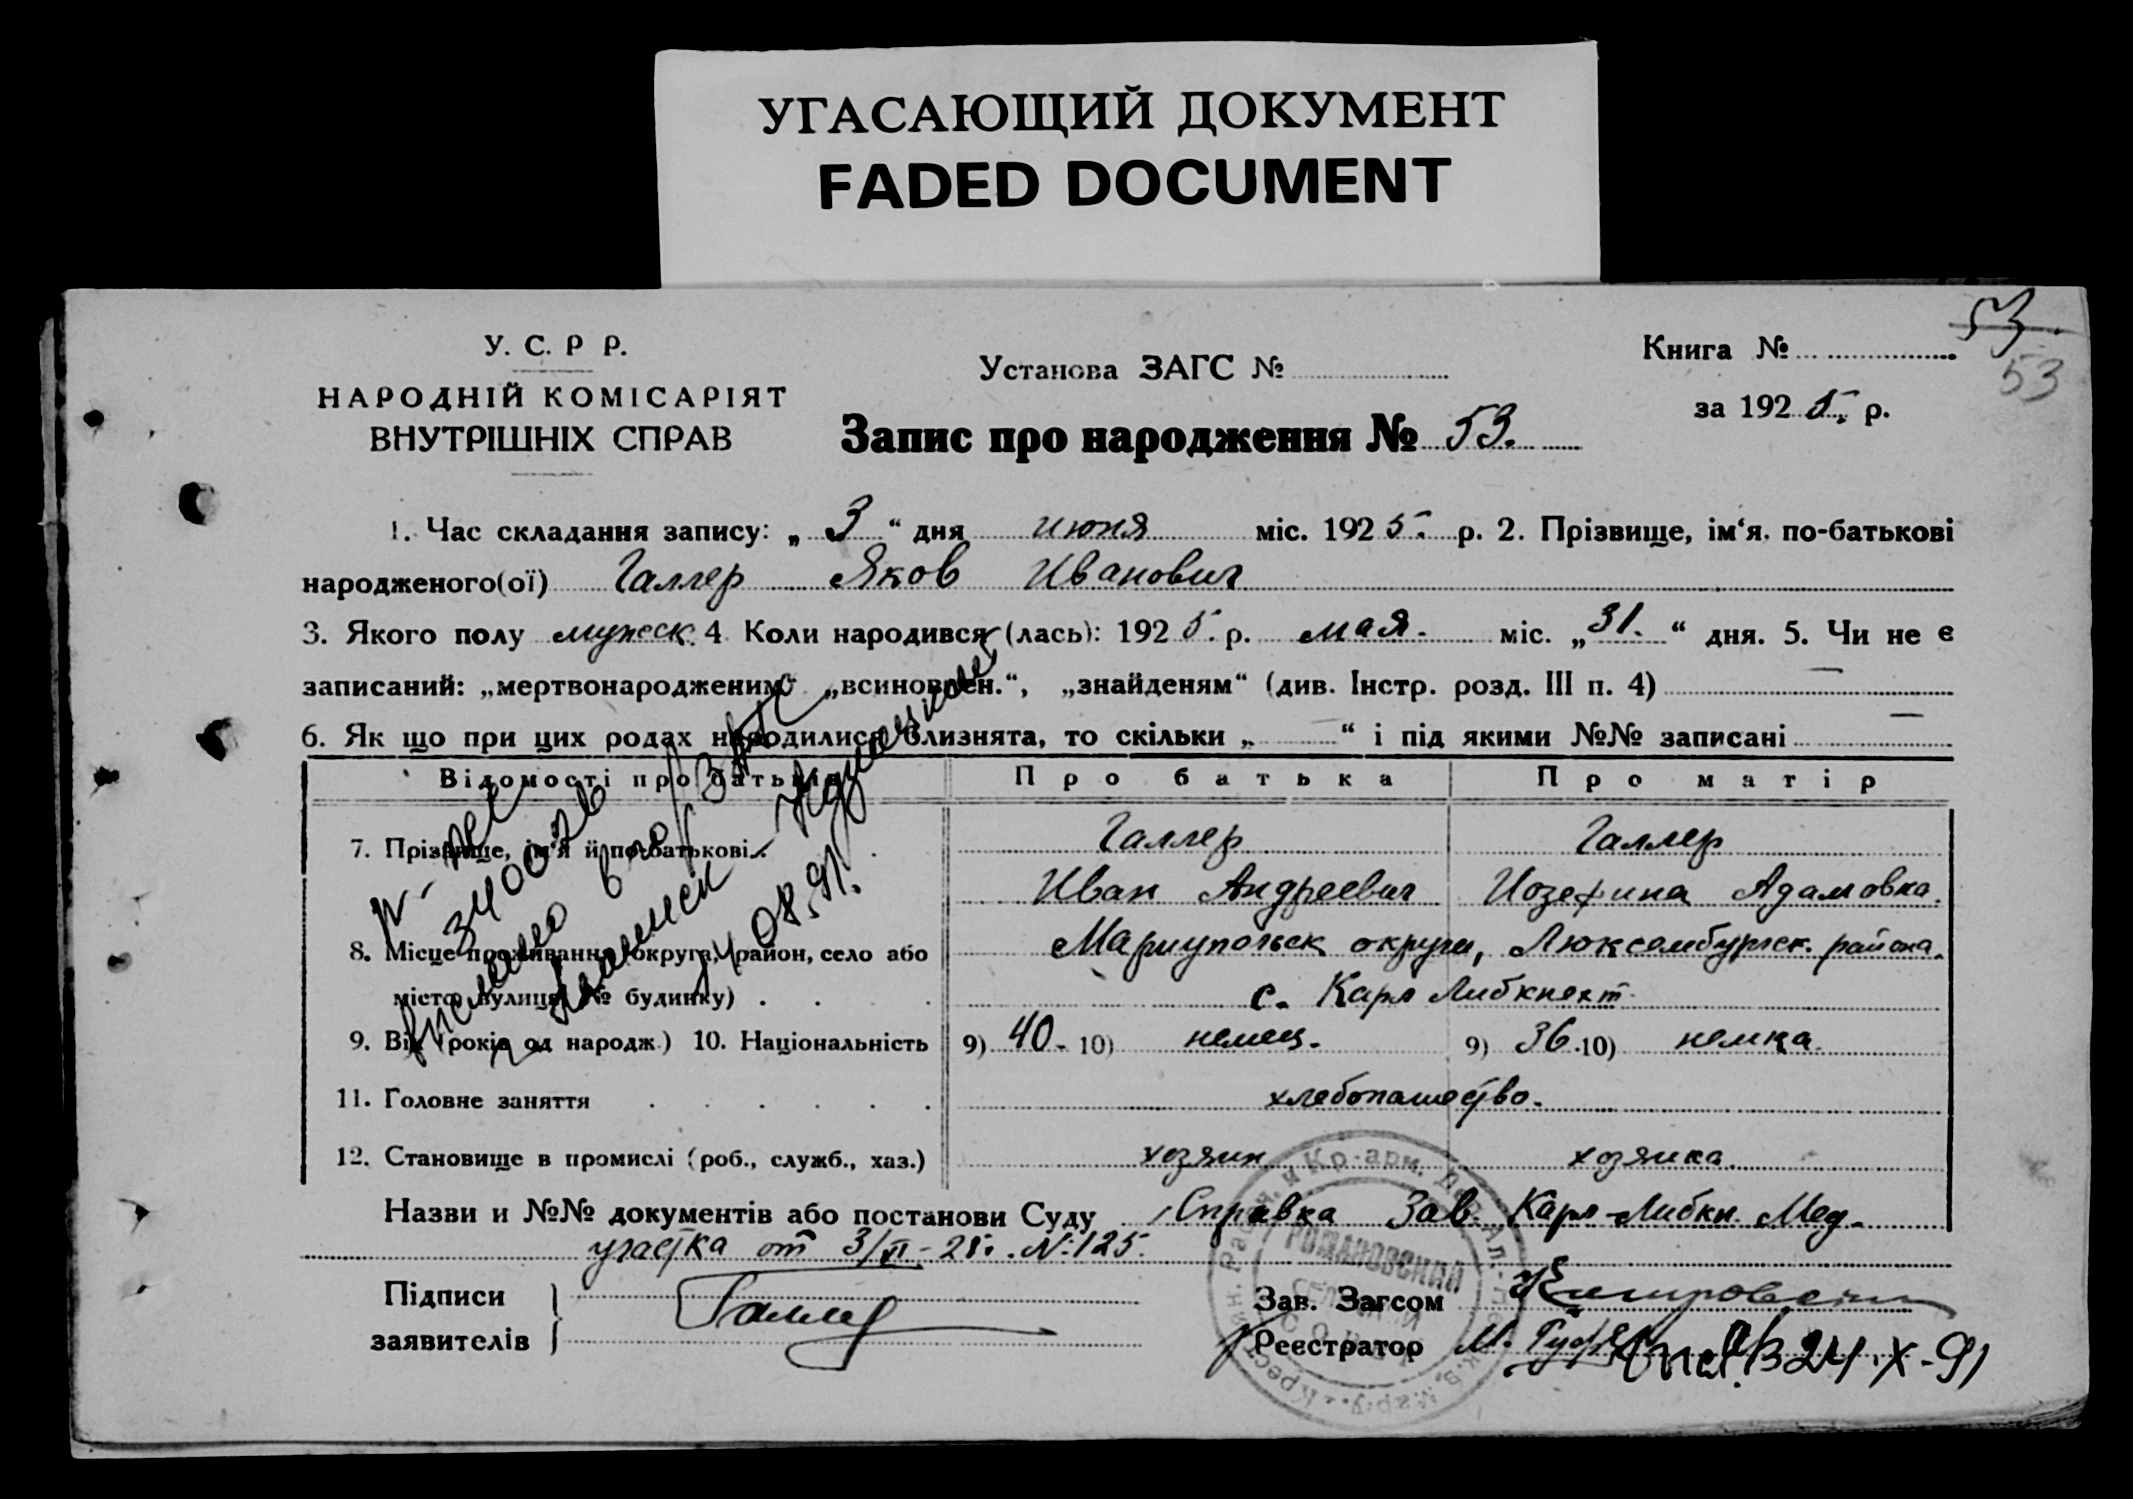 УГАСАЮЩИЙ ДОКУМЕНТ
FADED DOCUMENT
53.
53
У. С. Р Р.
НАРОДНІЙ КОМІСАРІЯТ
ВНУТРІШНІХ СПРАВ
Установа ЗАГС №
Книга №
за 192 5. р.
Запис про народження № 53.
1. Час складання запису: „ 3 “ дня июня міс. 192 5. р. 2. Прізвище, ім‘я, по-батькові
народженого(ої) Галлер Яков Иванович
3. Якого полу мужеск. 4 Коли народився (лась): 192 5. р. мая. міс. „ 31. “ дня. 5. Чи не є
записаний: „мертвонародженим“ „всиновлен.“, „знайденям“ (див. Інстр. розд. III п. 4) —
6. Як що при цих родах народилися близнята, то скільки „ — “ і під якими №№ записані —
Відомості про батьків
Про батька
Про матір
7. Прізвище, ім‘я й по-батькові
Галлер
Галлер
Иван Андреевич
Иозефина Адамовна.
8. Місце проживання (округа, район, село або
місто, вулиця, № будинку)
Мариупольск округи, Люксембургск. района.
с. Карл Либкнехт
9. Вік (років од народж.) 10. Національність
9) 40. 10) немец.
9) 36. 10) немка.
11. Головне заняття
хлебопашество.
12. Становище в промислі (роб., служб., хаз.)
хозяин
хозяйка.
Назви и №№ документів або постанови Суду Справка Зав. Карл-Либкн. Мед.
участка от 3/VI-25г. №125.
Підписи
заявителів
Галлер
Зав. Загсом
Реестратор М.
24.X-91
08.91г.
РОМАНОВСКИЙ